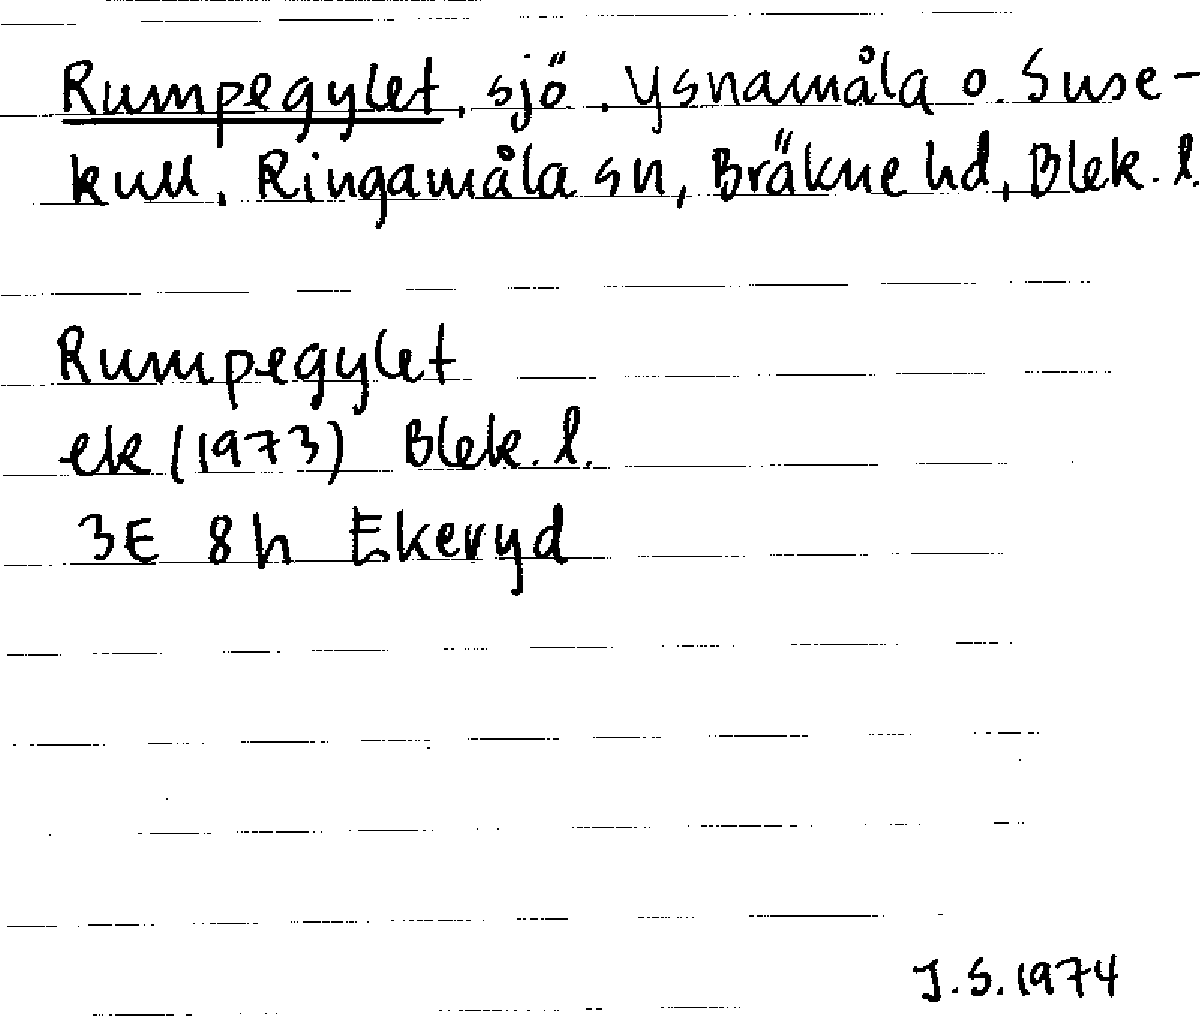 Rumpegylet, sjö, Ysnamåla o. Suse-
kull, Ringamåla sn, Bräkne hd, Blek. l.
Rumpegylet
ek (1973) Blek. l.
3E 8h Ekeryd
J.S. 1974